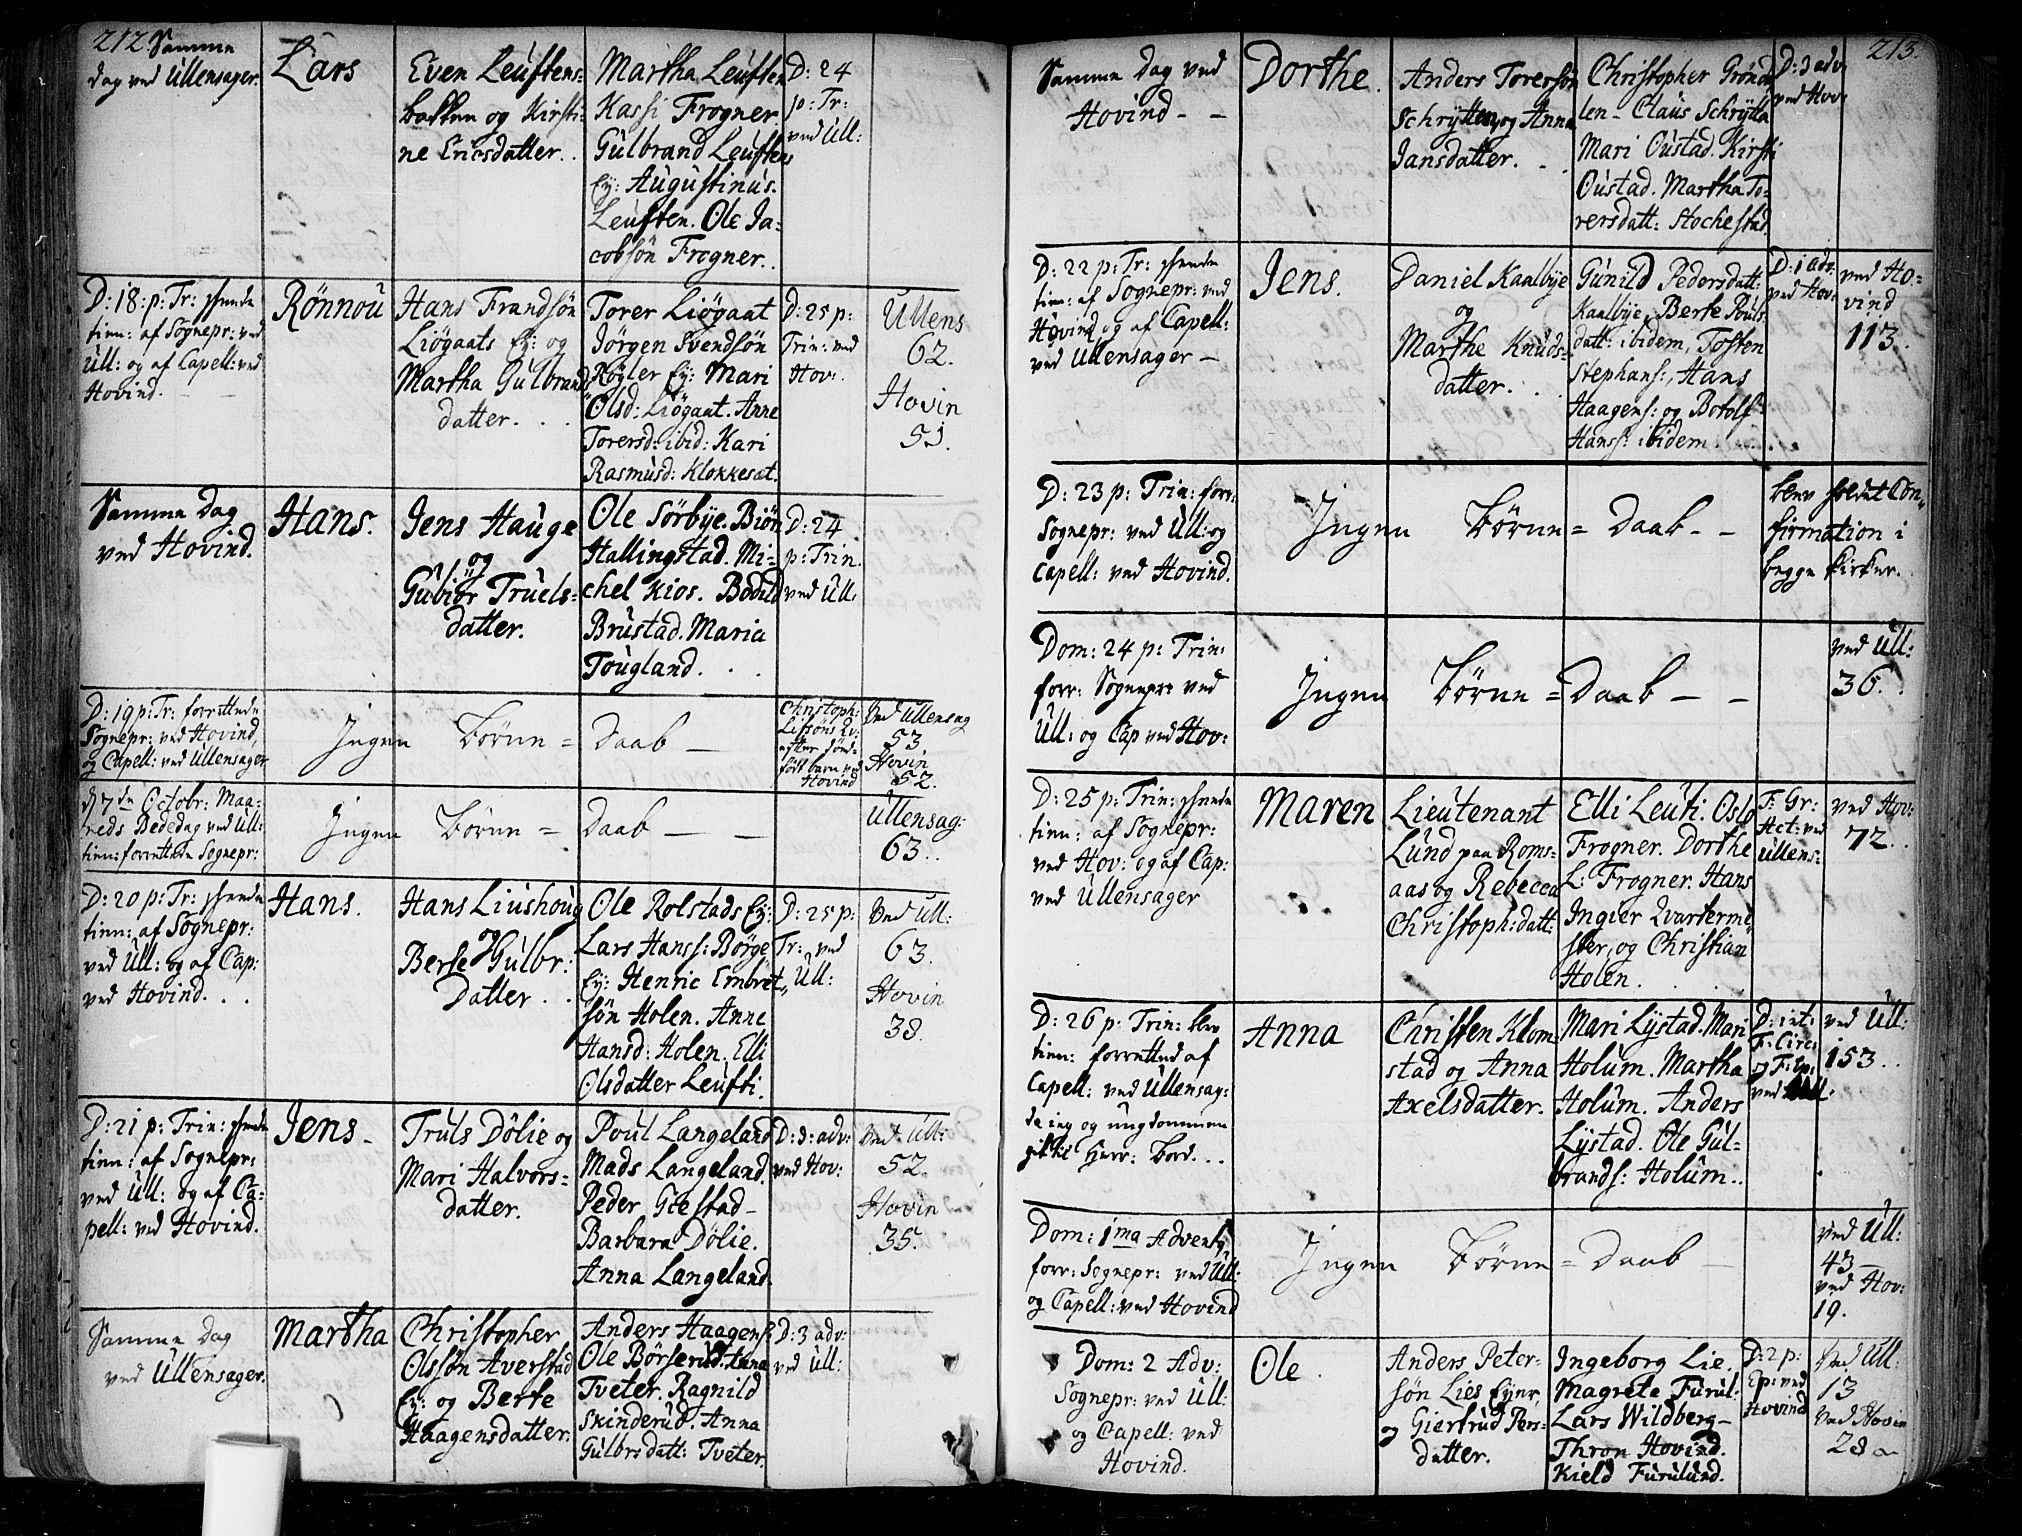 212 Samme
dag ved Ullensager.
Lars
Even Leuftens-
bakken og Kirsti-
ne Ericsdatter.
Martha Leuften
Kassi Frogner.
Gulbrand Leuftens
Ey: Augustinus
Leuften. Ole Ja-
cobsön Frogner.
D: 24
p: Tr:
ved Ull:
D: 18: p: Tr:
tien: af Sognepr: ved
Ull: og af Capell: ved
Hovind.
Rönnou
Hans Frandsön
Liögaats Ey: og
Martha Gulbrands
datter.
Torer Liögaat
Jörgen Svendsön
Røgler Ey: Mari
Olsd: Liögaat. Anne
Torersd: ibid: Kari
Rasmusd: Klokkesæt.
D: 25 p:
Trin: ved
Hov:
Ullens
62.
Hovin
51.
Samme Dag
ved Hovind.
Hans.
Jens Hauge
og
Gubiör Truels-
datter.
Ole Sörbye. Biön
Hallingstad. Mi-
chel Kios. Bodild
Brustad. Maria
Tougland.
D: 24
p: Trin.
ved Ull:
D: 19 p: Tr: forrettede
Sognepr: ved Hovind,
og Capell: ved Ullensager
Ingen Börne = Daab
Christoph:
efter död-
födt barn ved
Hovind
Ved Ullensag
53
Hovin
52.
d 7de Octobr: Maa-
neds Bededag ved Ull:
tien: forrettede Sognepr:
Ingen Börne = Daab
Ullensag:
63.
D: 20 p: Tr:
tien: af Sognepr:
ved Ull: og af Cap:
ved Hovind.
Hans.
Hans Liushoug
og
Berte Gulbr:
Datter
Ole Rolstads Ey:
Lars Hanss: Börge
Ey: Henric Embret-
sön Holen. Anne
Hansd: Holen. Elli
Olsdatter Leufti.
D: 25 p:
Tr: ved
Ull:
Ved Ull:
63.
Hovin
38.
D: 21 p: Trin:
tien: af Sognepr:
ved Ull: og af Ca-
pell: ved Hovind.
Jens
Truls Dölie og
Mari Halvors-
datter.
Poul Langeland
Mads Langeland.
Peder Giestad
Barbara Dölie.
Anna Langeland.
D: 3: adv:
ved Hov:
Ved Ull:
52.
Hovin
35.
Samme Dag
ved Ullensager.
Martha
Christopher
Olssön Averstad
Ey: og Berte
Haagensdatter.
Anders Haagens:
Ole Börserud. Anna
Tveter. Ragnild
Skinderud. Anna
Gulbrsdatt: Tveter.
D: 3 adv:
ved Ull:
213.
Samme Dag ved
Hovind
Dorthe.
Anders Torersön
Schrytten, og Anna
Jansdatter.
Christopher Grönda
len - Claus Schrytta
Mari Oustad. Kirsti
Oustad. Martha To-
rersdatt: Hochestad.
D: 3 adv
ved Hov:
D: 22 p: Tr:
tien: af Sognepr: ved
Hovind og af Capell:
ved Ullensager
Jens.
Daniel Kaalbye
og
Marthe Knuds-
datter.
Gunild Pedersdatt:
Kaalbye, Berte Pouls
datt: ibidem, Tosten
Stephans:, Hans
Haagens: og Botolf
Hanss: ibidem.
D: 1 Adv:
ved Hov:
ved Ho-
vind
113.
D: 23 p: Trin: forr:
Sognepr: ved Ull: og
Capell: ved Hovind.
Ingen Börne = Daab
blev holdet Con-
firmation i
begge Kirker.
Dom: 24 p: Trin:
forr: Sognepr: ved
Ull: og Cap ved Hov:
Ingen Börne = Daab
ved Ull:
36.
D: 25 p: Trin:
tien: af Sognepr:
ved Hov: og af Cap:
ved Ullensager
Maren
Lieutenant
Lund paa Roms-
aas og Rebecca
Christoph: datt:
Elli Leuti. Oslo
Frogner. Dorthe
L: Frogner. Hans
Ingier Qvarterme-
ster, og Christian
Holen.
ved
Ullens:
ved Hov:
72.
D: 26 p: Trin: blev
tien: forretted af
Capell: ved Ullensag:
og ungdommen
Anna
Christen Klom
stad og Anna
Axelsdatter.
Mari Lystad. Mari
Holum. Martha
Holum. Anders
Lystad. Ole Gul-
brands: Holum.
D: int:
F: Circ:
og F: Ep:
ved Ull.
ved Ull:
153.
Dom: 1ma Advent,
forr: Sognepr: ved Ull:
og Capell: ved Hovind
Ingen Börne = Daab
ved Ull:
43
ved Hov:
19.
Dom: 2 Adv:
Sognepr: ved Ull:
og Capell: ved
Hovind.
Ole
Anders Peter-
sön Lies Eyer,
og Giertrud Pers-
datter.
Ingeborg Lie.
Magrete Furul:
Lars Wildberg
Thron Hovind.
Kield Furulund.
D: 2 p:
Ep: ved
Hovind
Ved Ull:
13
Ved Hovin
28